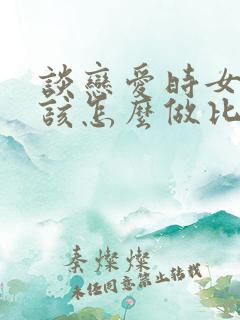 談戀愛時女
該怎麼做比
秦燦燦
未经同意禁止转载